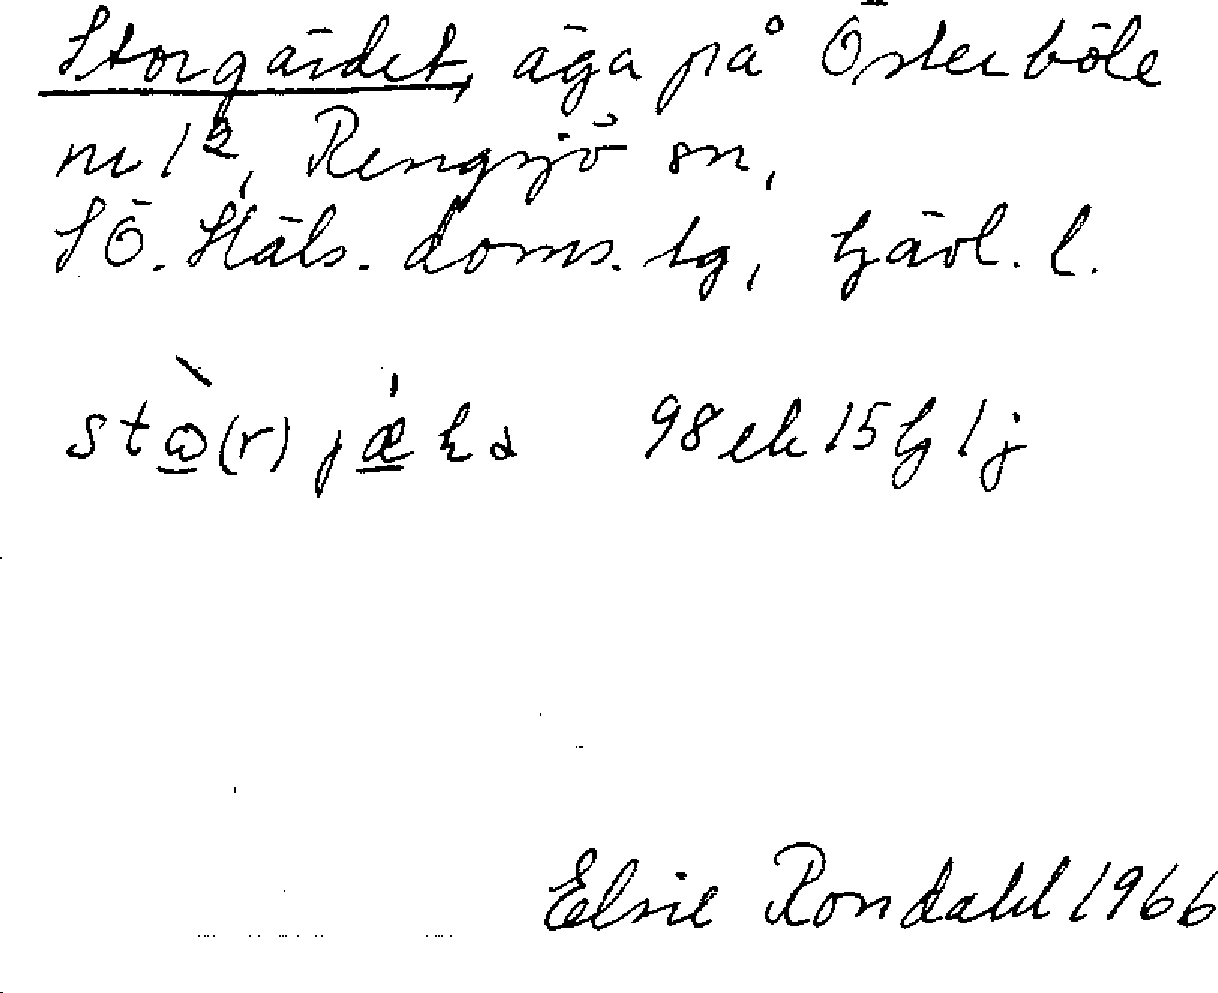 Storgärdet, äga på Österböle
nr 1², Rengsjö sn,
SÖ. Häls. doms. tg, Gävl. l.
98 ek 15 g 1 j
Elsie Rondahl 1966